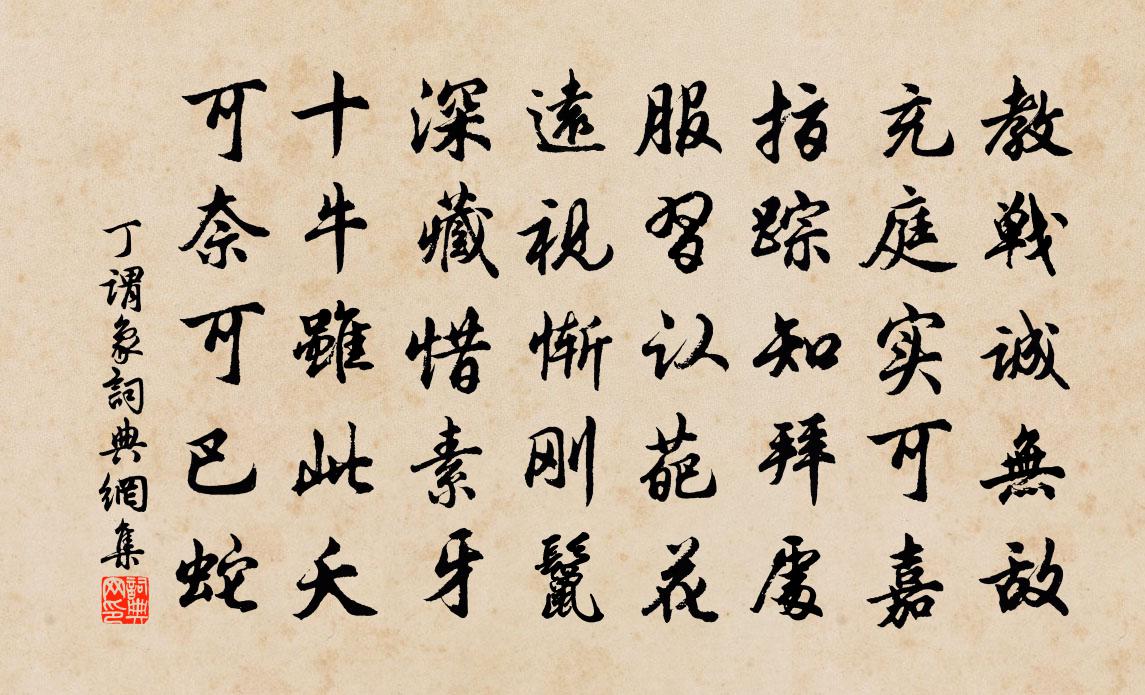 教戦诚無敌
充庭实可嘉
指踪知拜處
服習认葩花
遠視惭刚鬣
深藏惜素牙
十牛雖此夭
可奈可巴蛇
丁谓象詞典網集
詞典网印